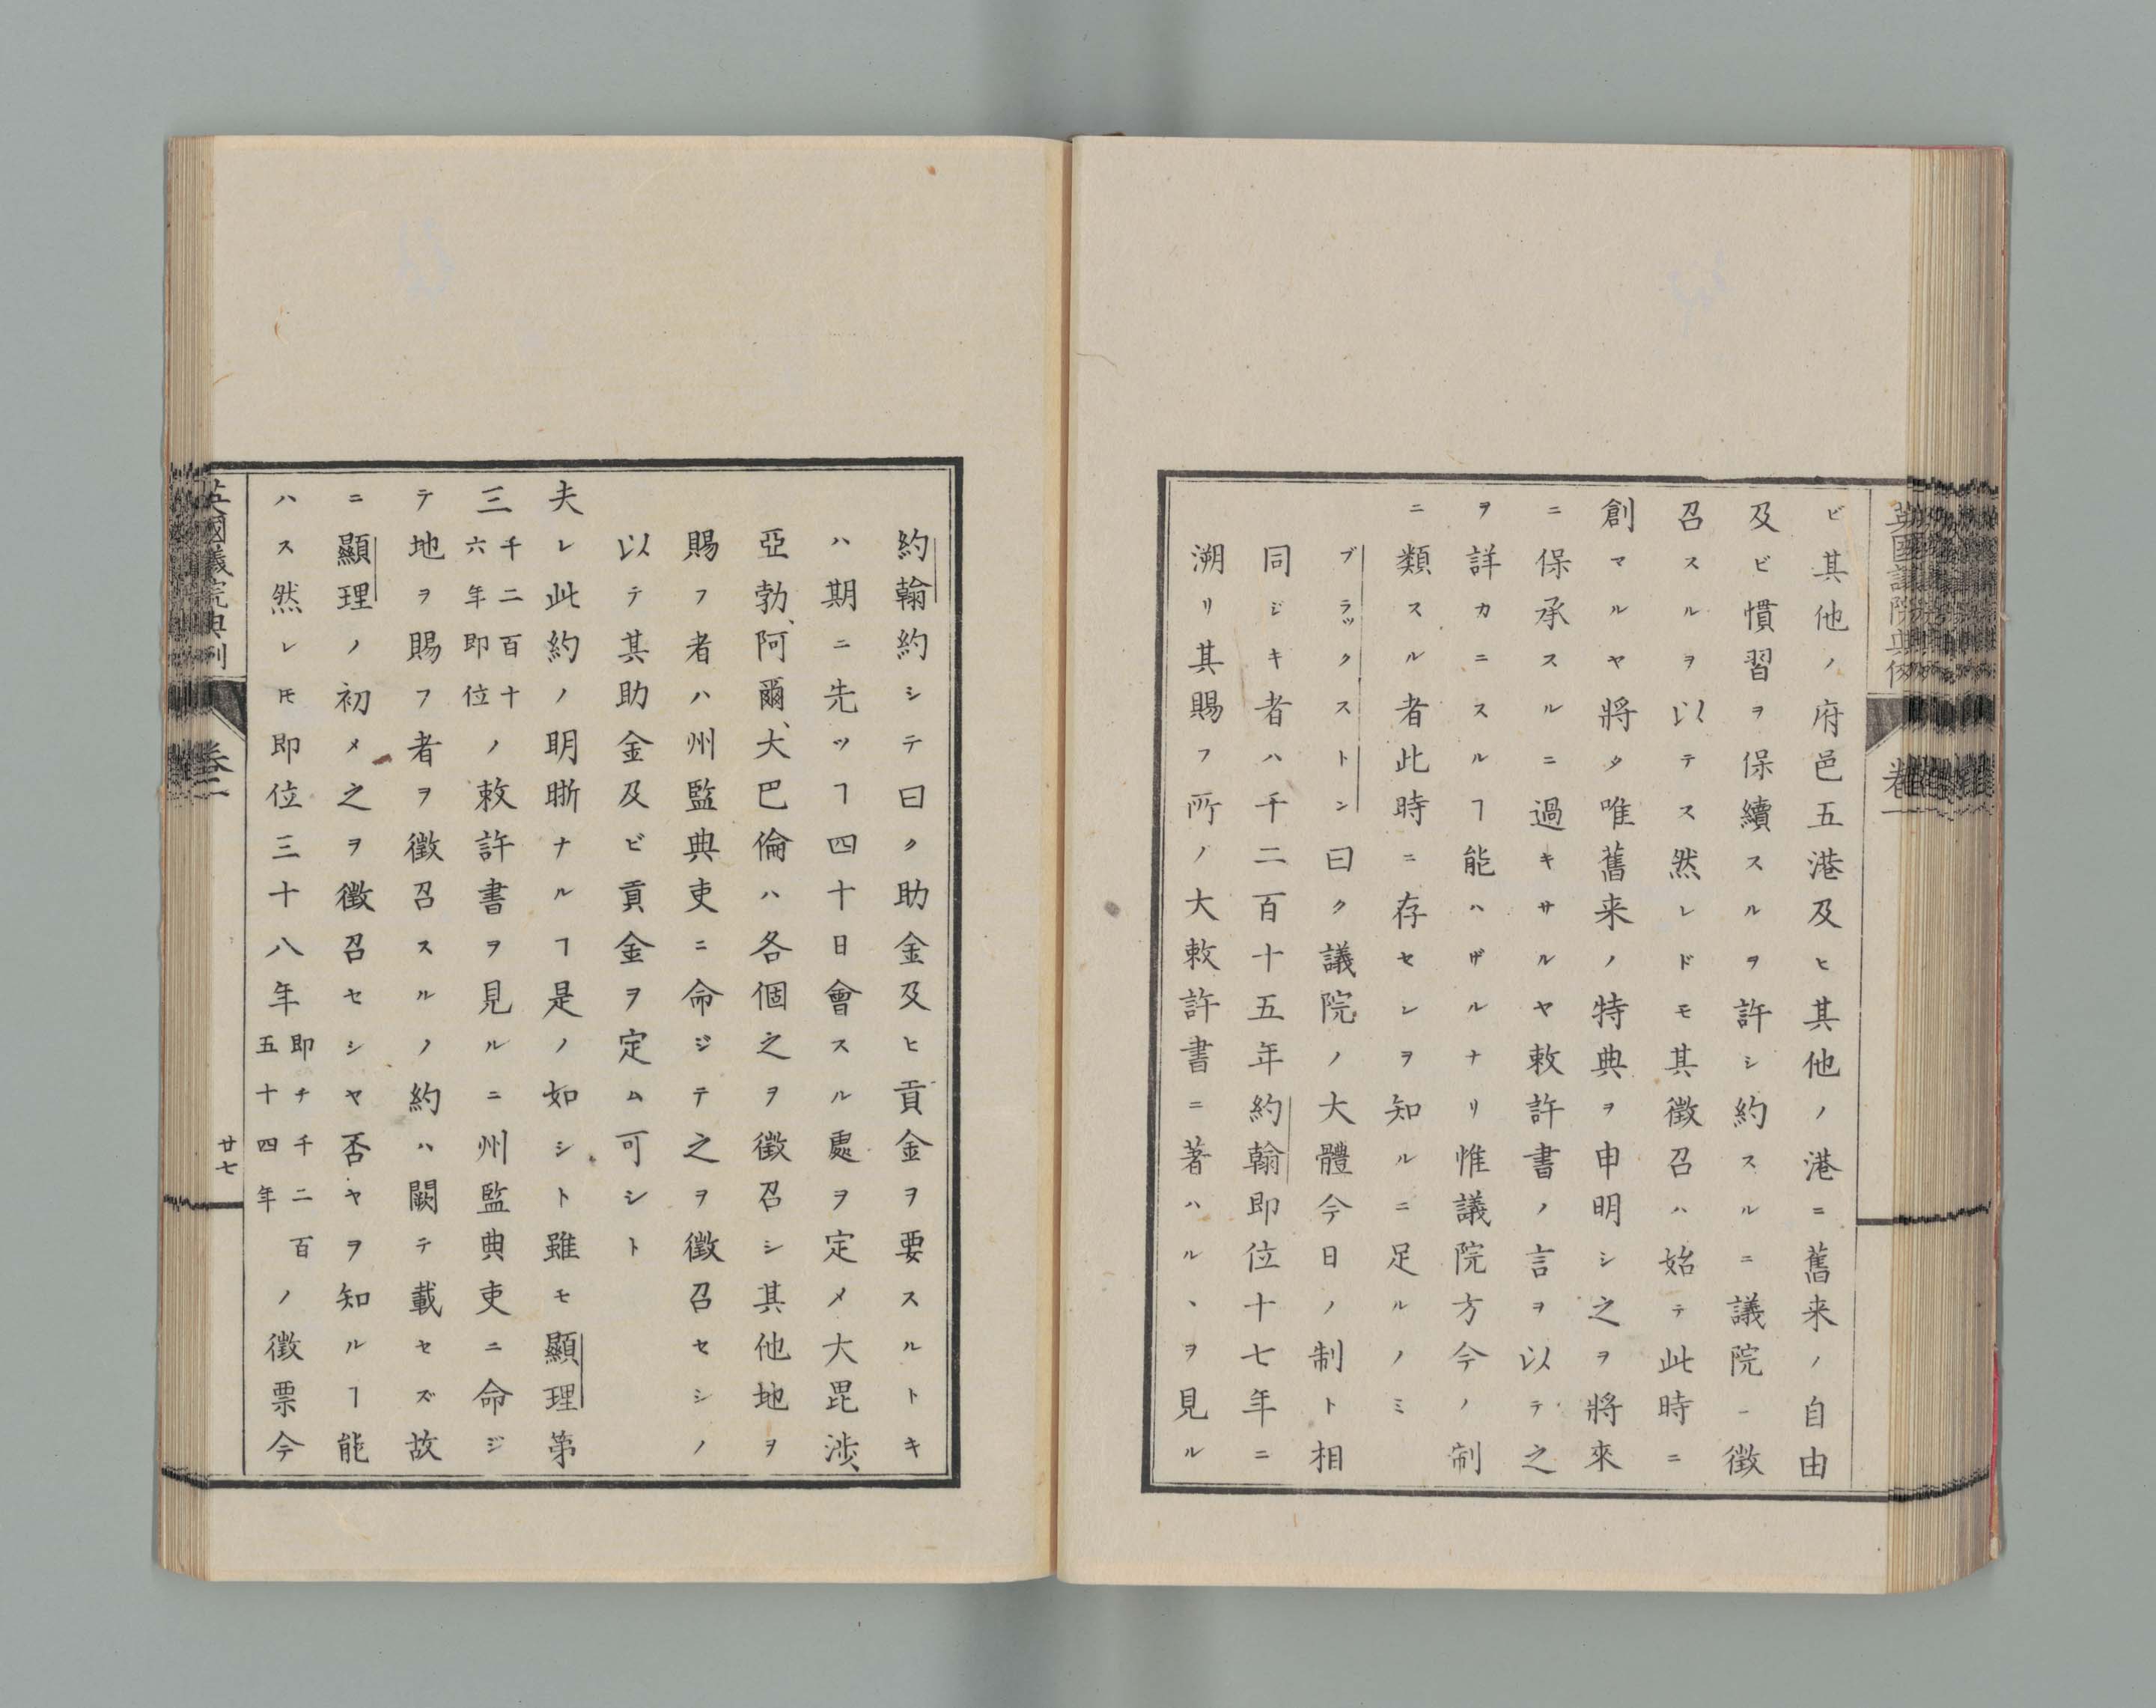 英國議院典例
卷一
ビ其他ノ府邑五港及ヒ其他ノ港ニ舊来ノ自由
及ビ慣習ヲ保續スルヲ許シ約スルニ議院ー徴
召スルヲ以テス然レドモ其徴召ハ始テ此時ニ
創マルヤ將タ唯舊来ノ特典ヲ申明シ之ヲ將來
ニ保承スルニ過キサルヤ敕許書ノ言ヲ以テ之
ヲ詳カニスルヿ能ハザルナリ惟議院方今ノ制
ニ類スル者此時ニ存セシヲ知ルニ足ルノミ
ブラックストン曰ク議院ノ大體今日ノ制ト相
同ジキ者ハ千二百十五年約翰即位十七年ニ
溯リ其賜フ所ノ大敕許書ニ著ハルヽヲ見ル
約翰約シテ曰ク助金及ヒ貢金ヲ要スルトキ
ハ期ニ先ツヿ四十日會スル處ヲ定メ大毘渉、
亞勃、阿爾、大巴倫ハ各個之ヲ徴召シ其他地ヲ
賜フ者ハ州監典吏ニ命ジテ之ヲ徴召セシノ
以テ其助金及ビ貢金ヲ定ム可シト
夫レ此約ノ明晣ナルヿ是ノ如シト雖モ顯理第
三千二百十六年即位ノ敕許書ヲ見ルニ州監典吏ニ命ジ
テ地ヲ賜フ者ヲ徴召スルノ約ハ闕テ載セズ故
ニ顯理ノ初メ之ヲ徴召セシヤ否ヤヲ知ルヿ能
ハス然レ𪜈即位三十八年即チ千二百五十四年ノ徴票今
英國議院典例
卷一
廿七